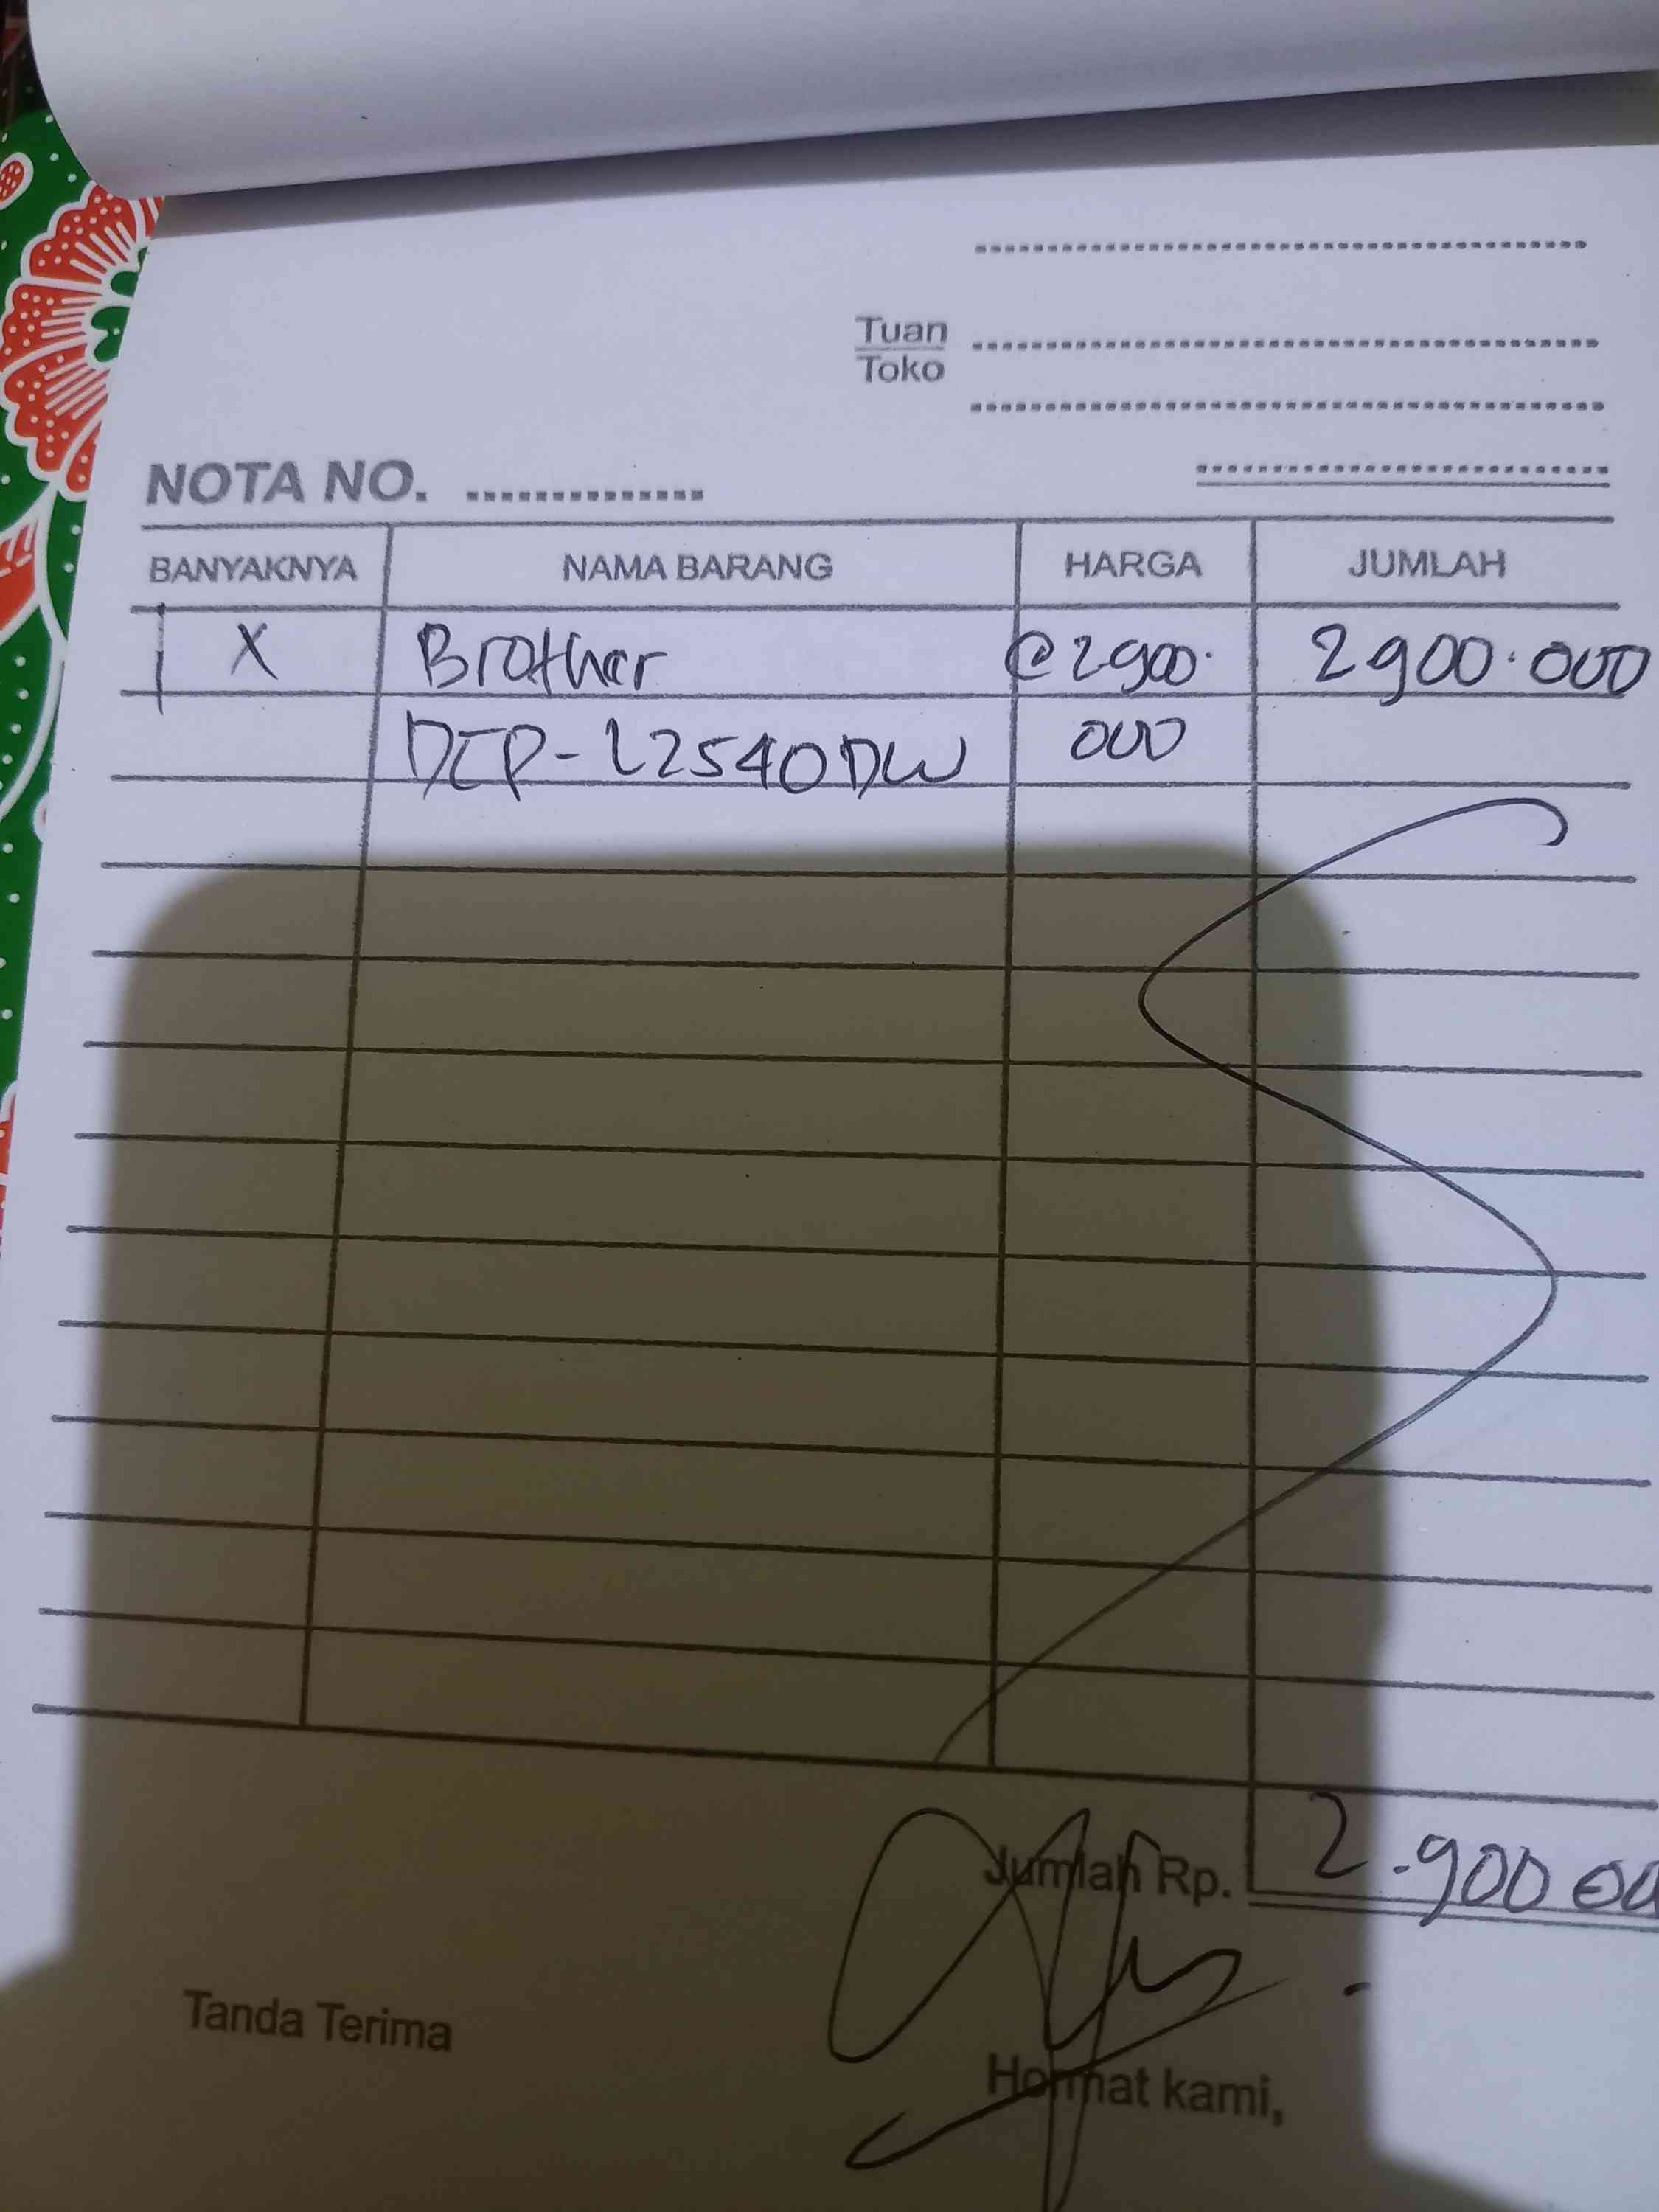 Tuan
Toko
NOTA NO.
BANYAKNYA NAMA BARANG HARGA JUMLAH
1 X Brother @ 2900. 2900.000
DCP-L2540DW 000
Jumlah Rp. 2.900 00
Tanda Terima
Hormat kami,